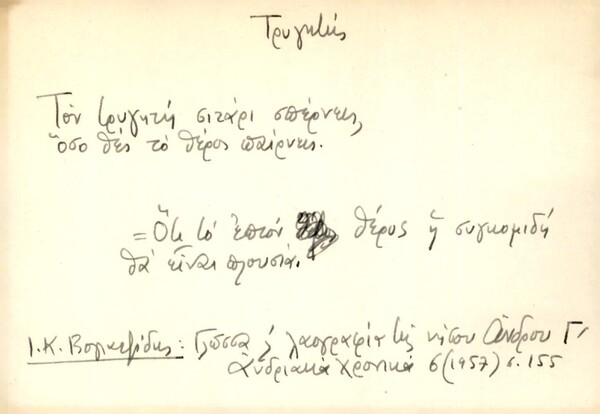 Τρυγητής
Τὸν τρυγητή σιτάρι σπέρνεις,
ὅσο θές τὸ θέρος παίρνεις.
= Ὅτι τὸ ἐπιόν θέρος ἡ συγκομιδή
θά εἶναι πλουσία.
Ι. Κ. Βογιατζίδης: Γλῶσσα & λαογραφία τῆς νήσου Ἄνδρου Γ'
Ἀνδριακά Χρονικά 6 (1957) σ. 155